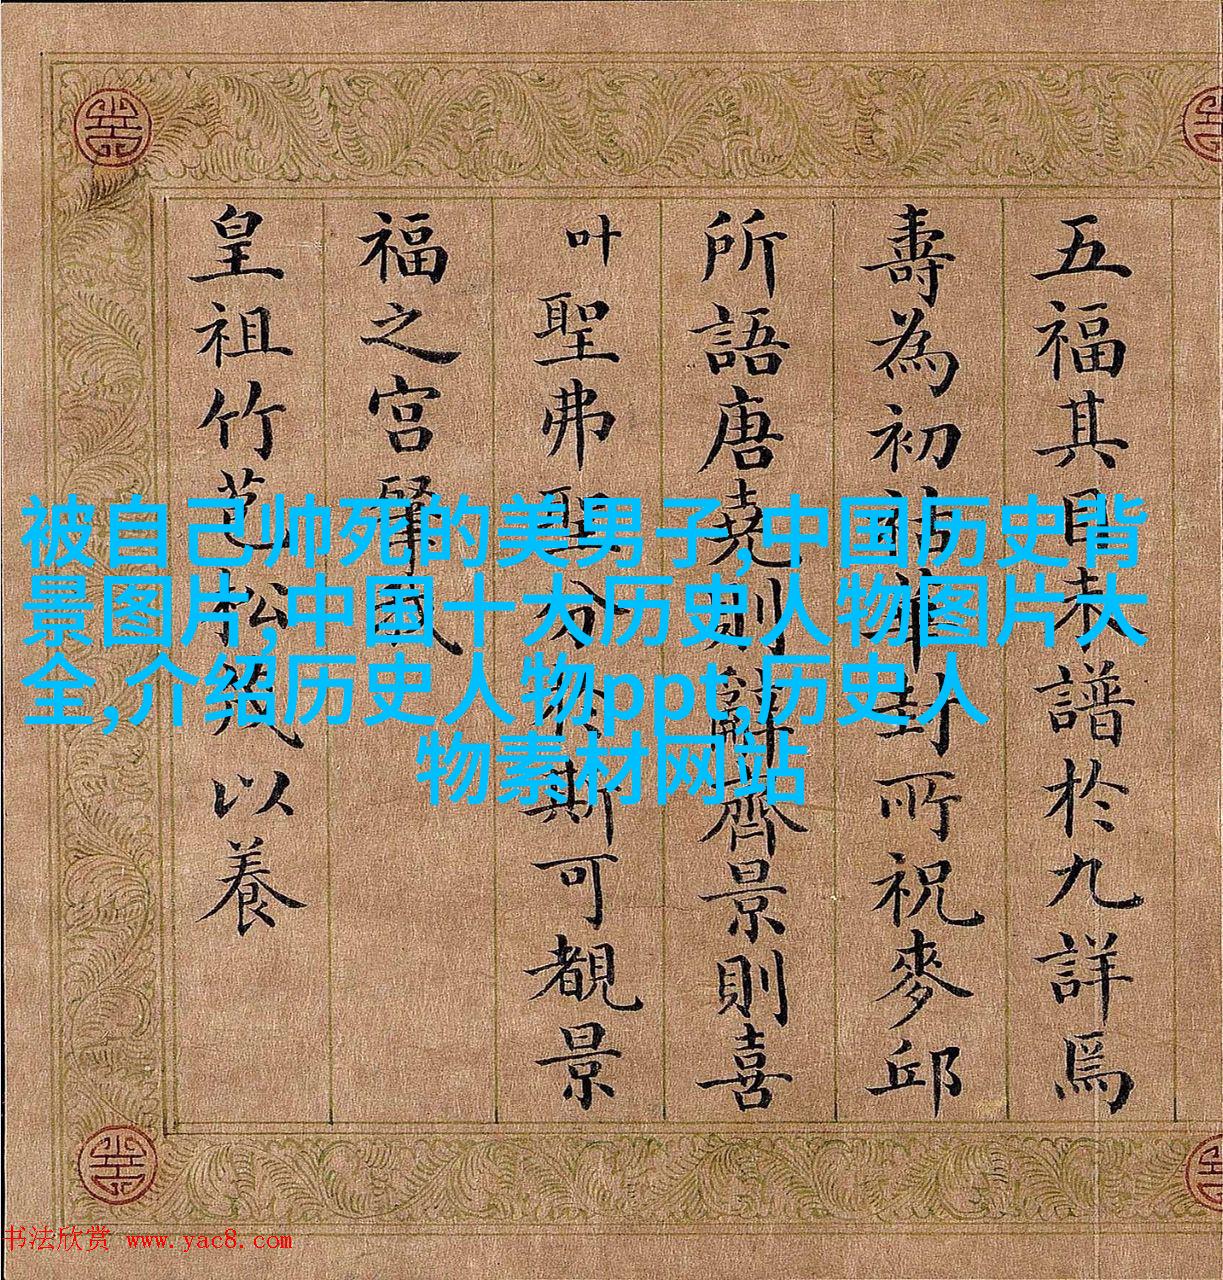 五福其目譜於九詳焉
壽為初封所祝麥邱
所語唐堯則辭齊景則喜
叶聖弗聖分於斯可覩景
福之宮肇
皇祖竹苞松茂以養
被自己帅死的美男子,中国历史背
景图片,中国十大历史人物图片大
全,介绍历史人物ppt,历史人
物素材网站
书法欣赏 www.yac8.com